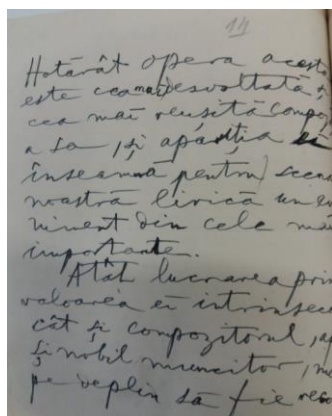 14
Hotărât opera acest
este cea mai desvoltată și
cea mai reușită compoz
a sa, și apariția ei
înseamnă pentru scena
noastră lirică un ev
niment din cele mai
importante.
Atât lucrarea prin
valoarea ei intrinsec
cât și compozitorul, ap
și nobil muncitor, me
pe deplin să fie